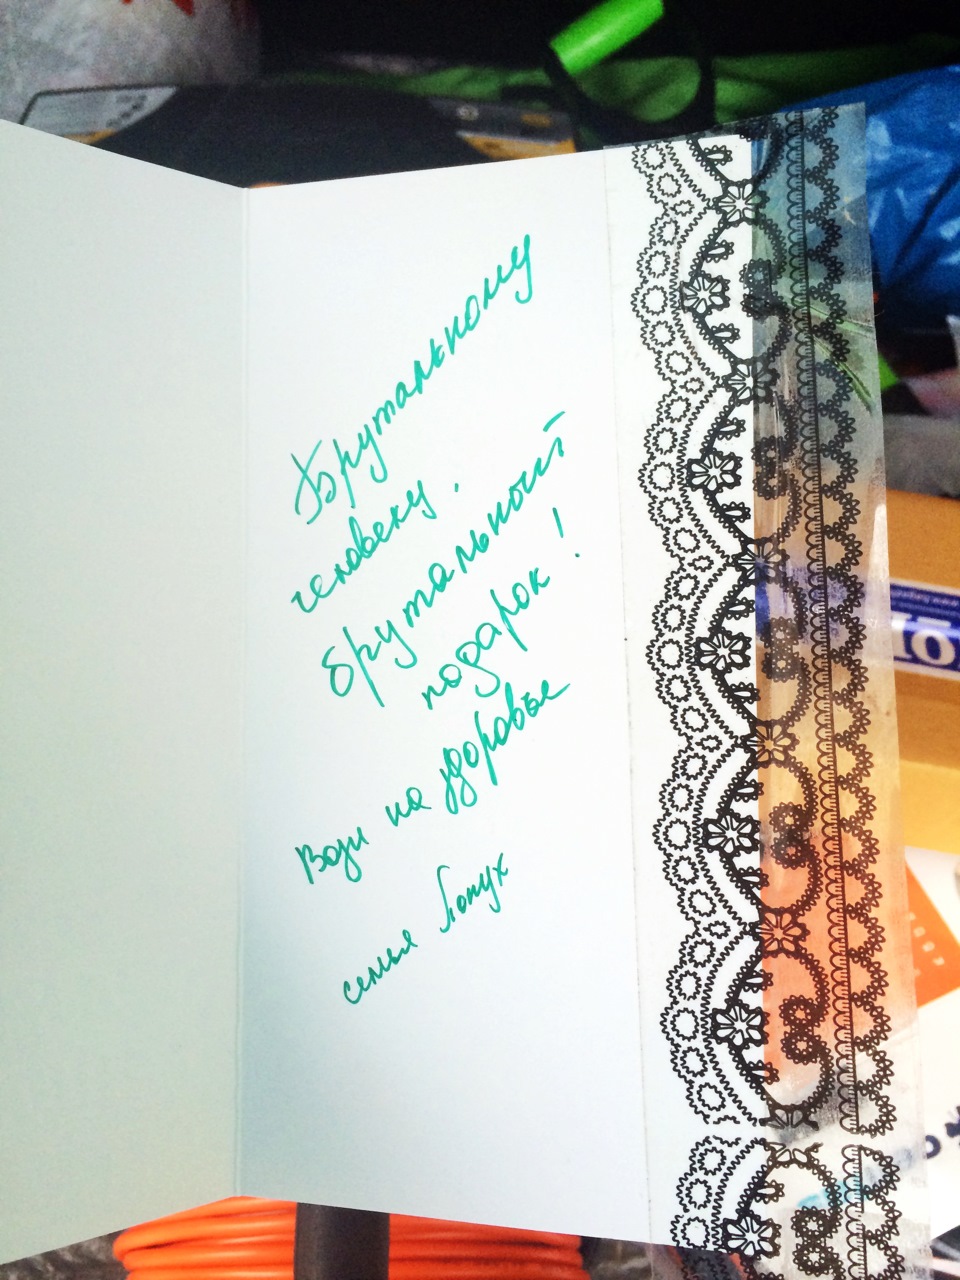 Брутальному
человеку.
брутальный
подарок!
Вози на здоровье
семья Лопух